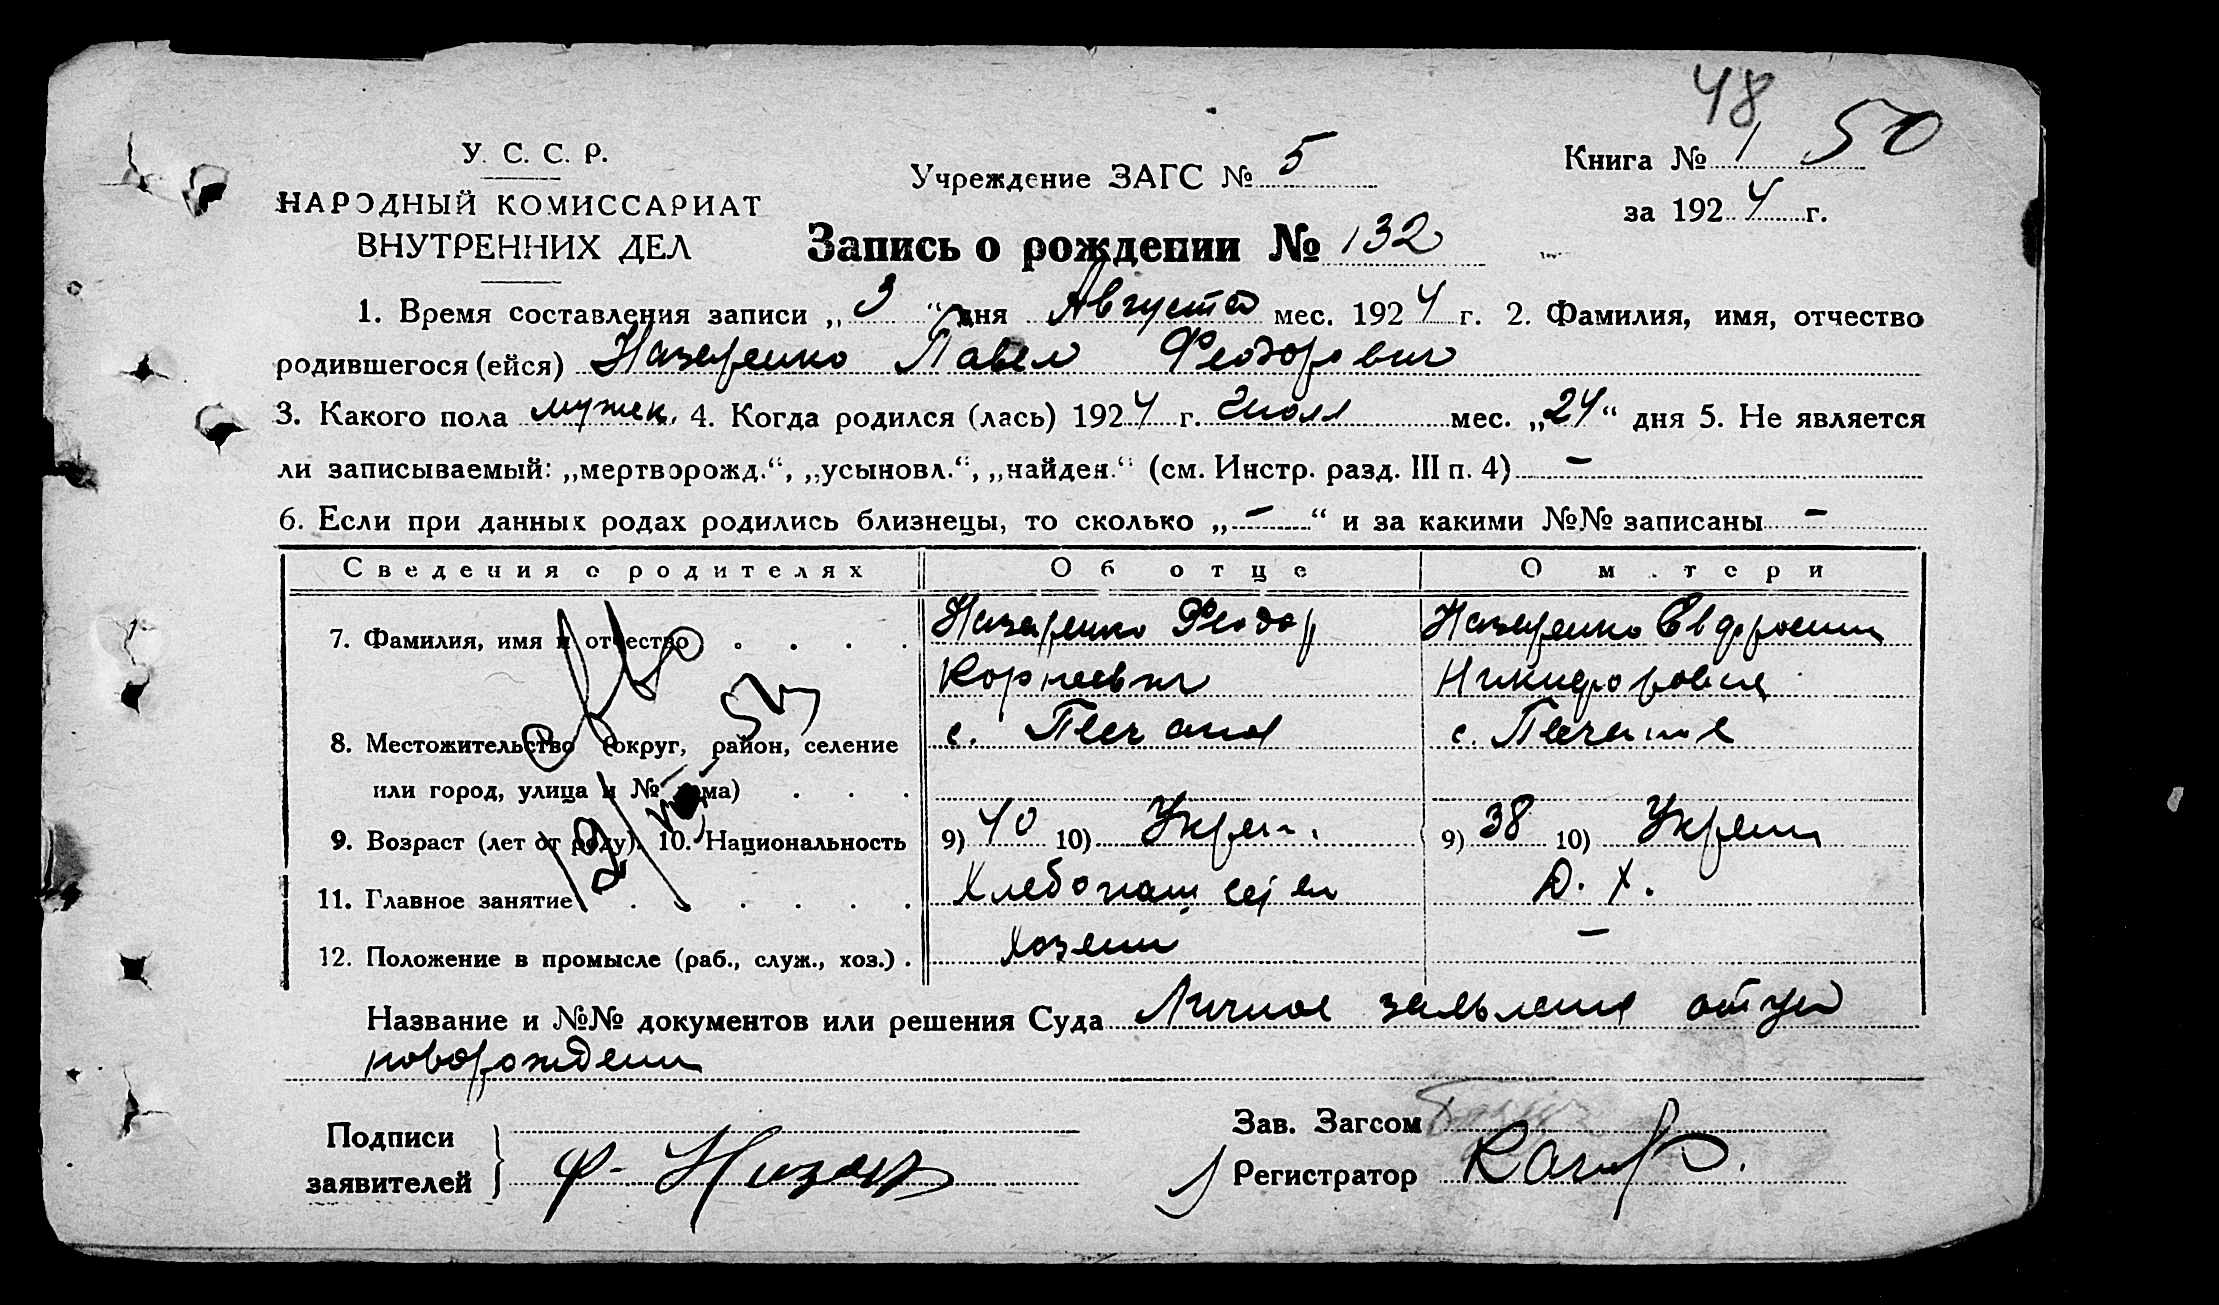 48
У. С. С. Р.
НАРОДНЫЙ КОМИССАРИАТ
ВНУТРЕННИХ ДЕЛ
Учреждение ЗАГС № 5
Книга № 1 50
за 1924 г.
Запись о рождении № 132
1. Время составления записи „3“ дня Августа мес. 1924 г. 2. Фамилия, имя, отчество
родившегося (ейся) Назаренко Павел Феодорович
3. Какого пола мужск. 4. Когда родился (лась) 1924 г. Июля мес. „24“ дня 5. Не является
ли записываемый: „мертворожд.“, „усыновл.“, „найден.“ (см. Инстр. разд. III п. 4) –
6. Если при данных родах родились близнецы, то сколько „–“ и за какими №№ записаны –
Сведения о родителях Об отце О матери
7. Фамилия, имя и отчество Назаренко Феодор Назаренко Евфросин
Корнеевич Никифоровна
8. Местожительство (округ, район, селение с. с.
или город, улица и № дома)
9. Возраст (лет от роду). 10. Национальность 9) 40 10) Укра. 9) 38 10) Украин
11. Главное занятие Хлебопашец Д. Х.
12. Положение в промысле (раб., служ., хоз.) Хозяин –
Название и №№ документов или решения Суда Личное заявление отца
новорожден
Подписи
заявителей Ф. Назар
Зав. Загсом
Регистратор